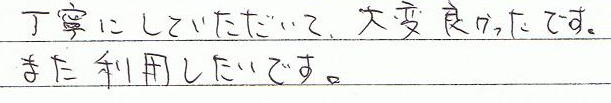 丁寧にしていただいて、大変良かったです。
また利用したいです。